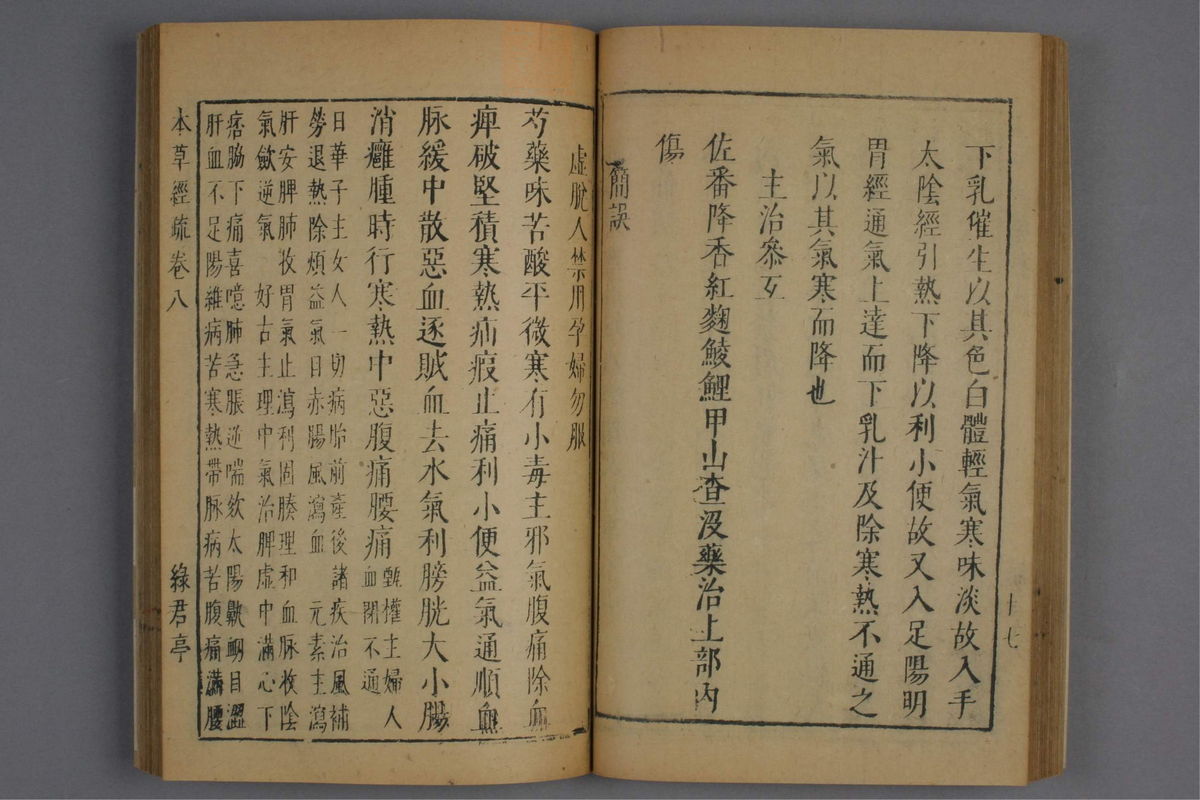 下乳催生以其色白體輕氣寒味淡故入手
太陰經引熱下降以利小便故又入足陽明
胃經通氣上達而下乳汁及除寒熱不通之
氣以其氣寒而降也
主治叅互
佐番降香紅麴鯪鯉甲山查沒藥治上部內
傷
簡誤
十七
虛脫人禁用孕婦勿服
芍藥味苦酸平微寒有小毒主邪氣腹痛除血
痺破堅積寒熱疝瘕止痛利小便益氣通順血
脉緩中散惡血逐賊血去水氣利膀胱大小腸
消癰腫時行寒熱中惡腹痛腰痛
甄權主婦人
血閉不通
日華子主女人一切病胎前產後諸疾治風補
勞退熱除煩益氣目赤腸風瀉血 元素主瀉
肝安脾肺收胃氣止瀉利固腠理和血脉收陰
氣歛逆氣 好古主理中氣治脾虛中滿心下
痞脇下痛喜噫肺急脹逆喘欬太陽鼽衂目澀
肝血不足陽維病苦寒熱帶脉病苦腹痛滿腰
本草經疏卷八
綠君亭